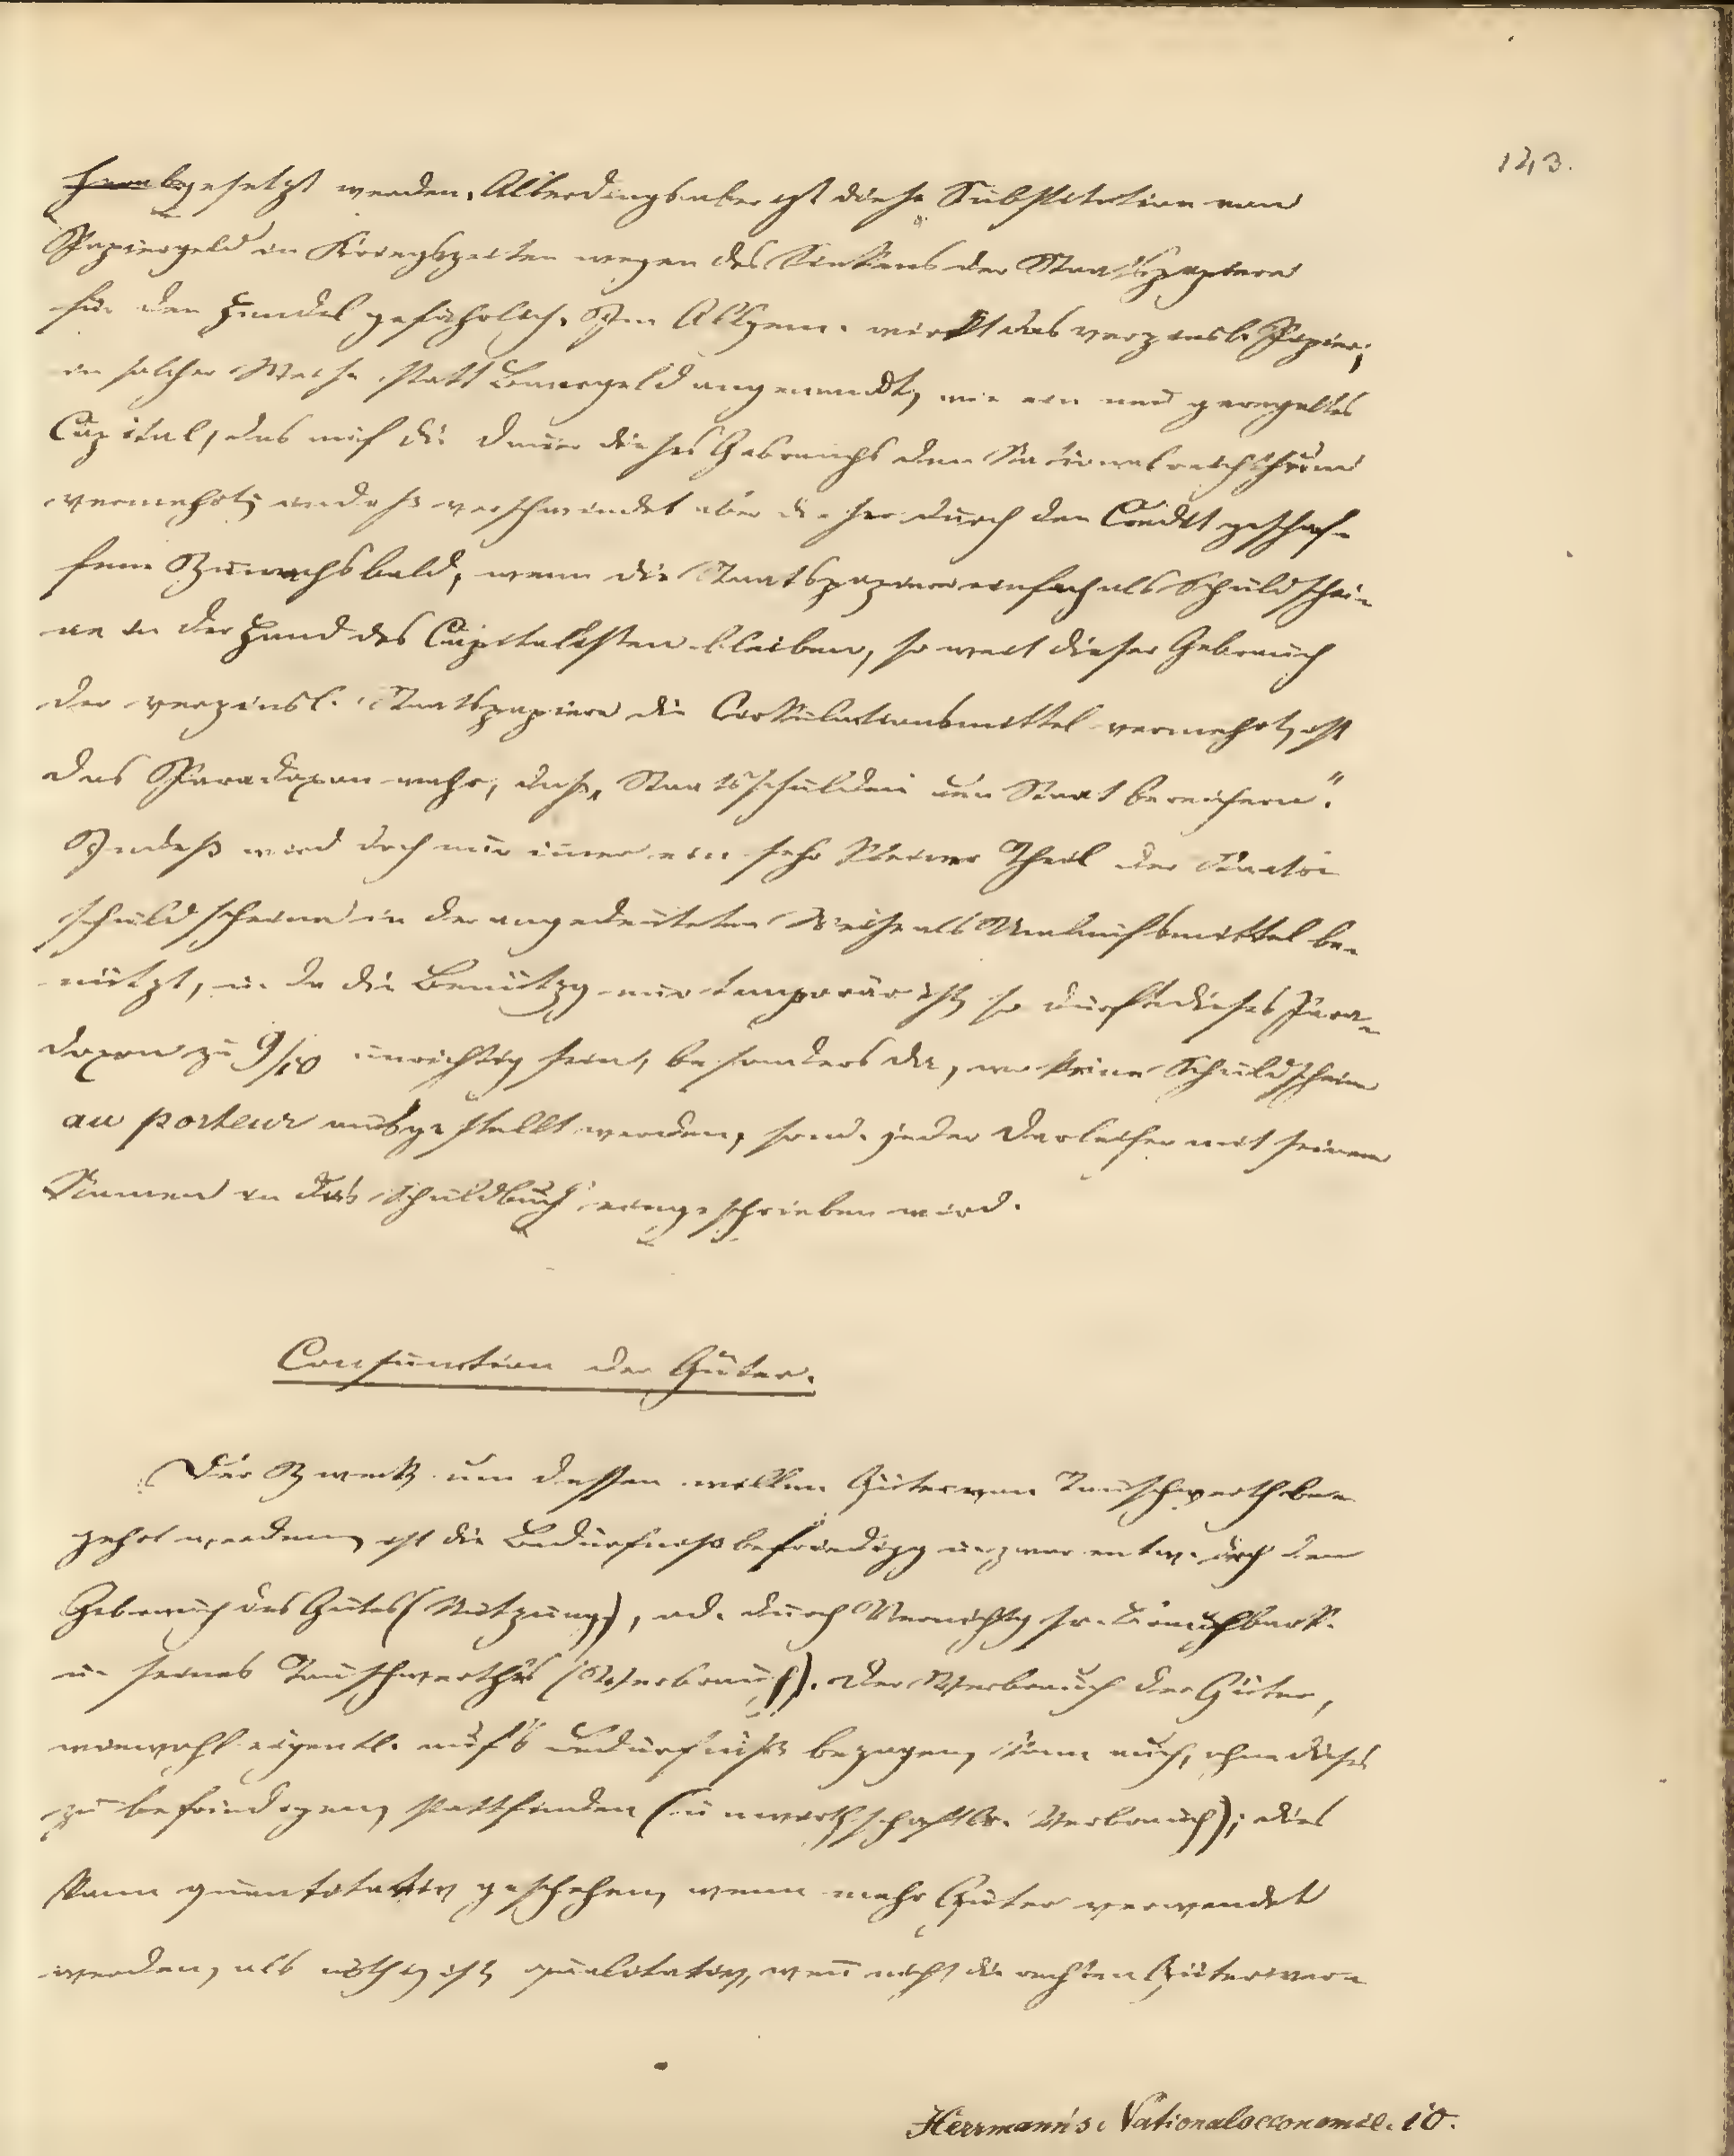 143.
herabgesetzt werden. Allerdings aber ist diese Substitution von
Papiergeld in Kriegszeiten wegen des Sinkens der Staatspapiere
für den Handel gefährlich. Im Allgem. wirkt das verzinsl. Papier,
in solcher Weise statt Baargeld angewandt, wie ein neu geregeltes
Capital, das auf die Dauer dieses Gebrauchs den Nationalreichthum
vermehrt; indeß verschwindet aber dieser durch den Credit geschaf-
fene Zuwachs bald, wenn die Staatspapiere einfach als Schuldschei-
ne in der Hand des Capitalisten bleiben, so weit dieser Gebrauch
der verzinsl. Staatspapiere die Cirkulationsmittel vermehrt, ist
das Paradoxon wahr, daß „Staatsschulden den Staat bereichern".
Indeß wird doch nur imer ein sehr kleiner Theil der Staats-
schuldscheine in der angedeuteten Weise als Umlaufsmittel be-
nützt, u. da die Benützg nur temporär ist, so dürfte dieses Para-
doxon zu 9/10 unrichtig sein, besonders da, wo keine Schuldscheine
au porteur ausgestellt werden, sond. jeder Darleiher mit seinem
Namen in das Schuldbuch eingeschrieben wird.
Consumtion der Güter.
Der Zweck um dessen willen Güter von Tauschwerth be-
gehrt werden, ist die Bedürfnißbefriedigg u. zwar entw. dch den
Gebrauch des Gutes (Nutzung), od. durch Vernichtg sr. Brauchbark.
u. seines Tauschwerthes (Verbrauch). Der Verbrauch der Güter,
wiewohl eigentl. auf's Bedürfniß bezogen, kann auch, ohne dieses
zu befriedigen, stattfinden (unwirthschaftlr. Verbrauch); dies
kann quantitativ geschehen, wenn mehr Güter verwendet
werden, als nöthig ist, qualitativ, wen nicht die rechten Güter ver-
Herrmann's Nationaloeconomie. 10.